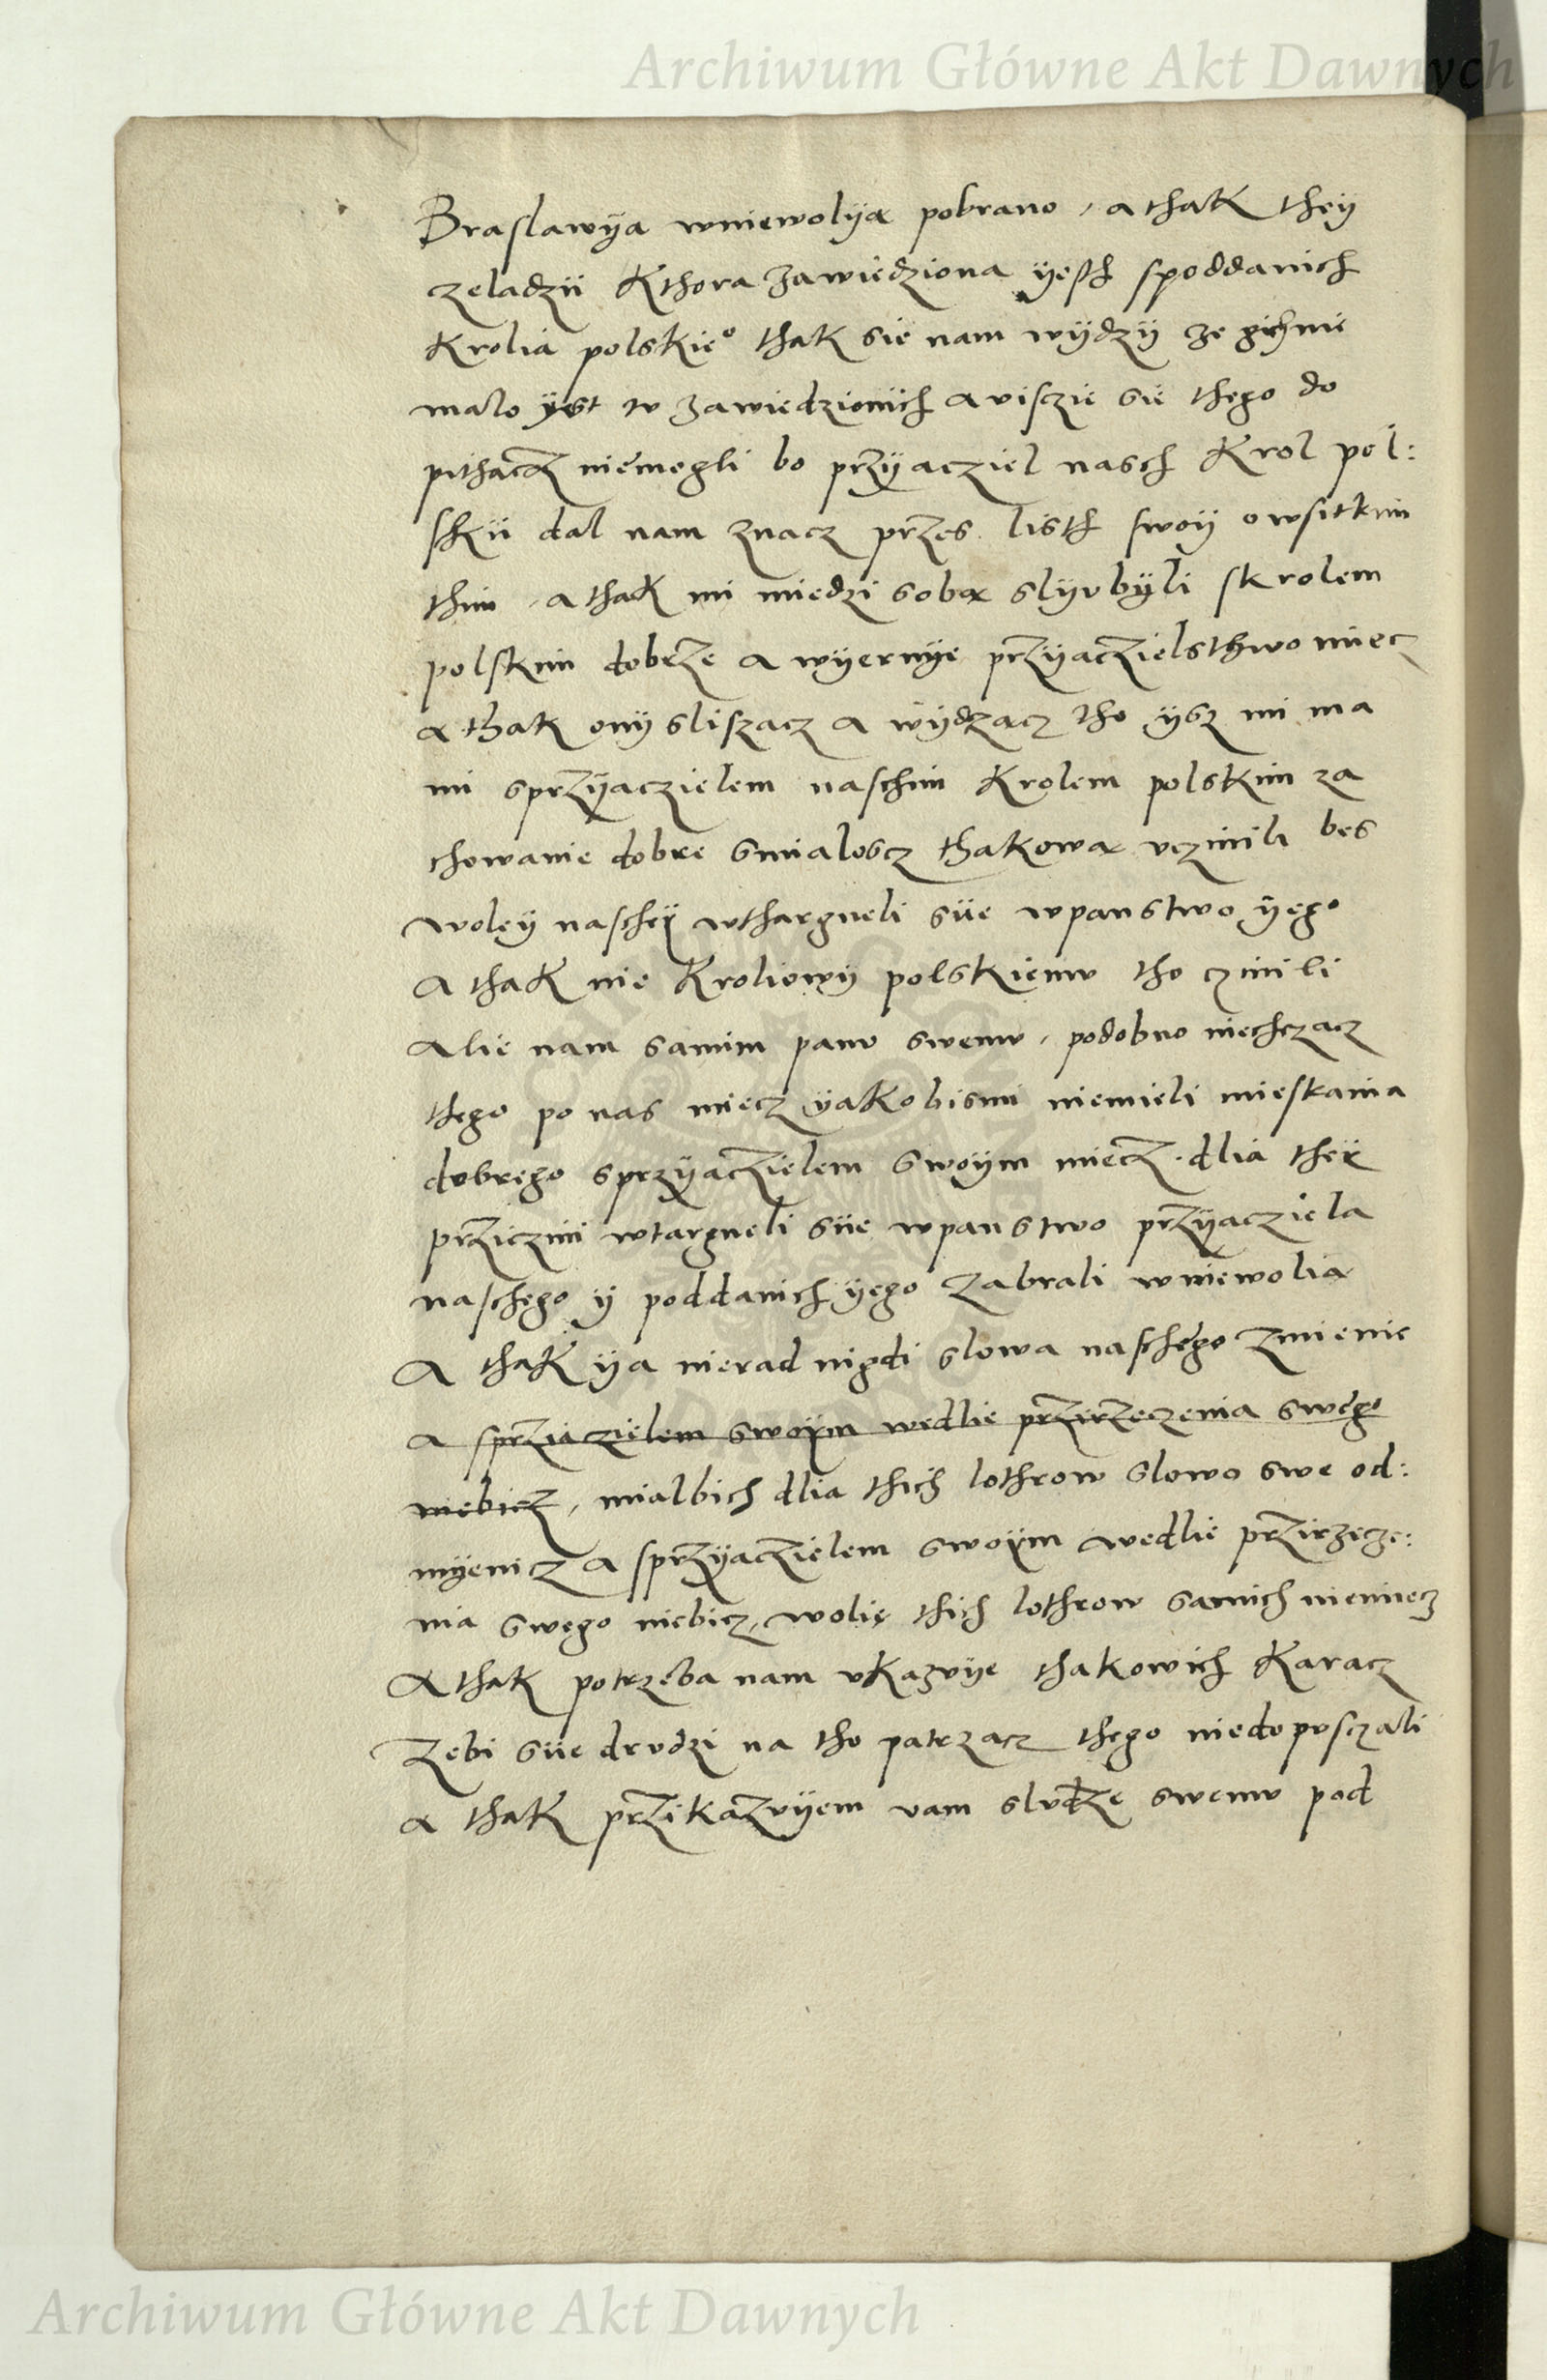 Archiwum Główne Akt Dawnych
Braslawÿa wniewolÿą pobrano, a thak theÿ
czeladzÿ kthora zawiedziona ÿesth spoddanich
krolia polskie° thak sie nam wÿdzÿ ze gichnie
malo ÿest w zawiedzionich a visczie sie thego do
pithacz niemogli bo przÿacziel nasch krol pol:
skÿ dal nam znacz przes listh swoÿ owsitkim
thim, a thak mi miedzi sobą slÿvbÿli skrolem
polskim dobrze a wÿernÿe przÿaczielsthwo miecz
a thak onÿ sliszacz a wÿdzacz tho ÿsz mi ma
mi sprzÿaczielem naschim krolem polskim za
chowanie dobre smialoscz thakową vczinili bes
woleÿ nascheÿ wthargneli sÿe wpanstwo ÿego
A thak nie kroliowÿ polskiemv tho czinili
Alie nam samim panv swemv, podobno niechczacz
thego po nas miecz ÿakobismi niemieli mieskania
dobrego sprzÿaczielem swoÿm miecz. dlia theÿ
prziczini wtargneli sÿe wpanstwo przÿacziela
naschego ÿ poddanich ÿego zabrali wniewolią
A thak ÿa nierad nigdi slowa naschego zmienie
a sprziaczielem swoÿm wedlie przirzeczenia swego
niebicz, mialbich dlia thich lothrow slowo swe od:
mÿenicz a sprzÿaczielem swoÿm wedlie przirzecze:
nia swego niebicz, wolie thich lothrow samich niemiecz
A thak potrzeba nam vkazvÿe thakowich karacz
Zebi sÿe drvdzi na tho patrzacz thego niedopvsczali
a thak przikazvÿem vam slvdze swemv pod
Archiwum Główne Akt Dawnych